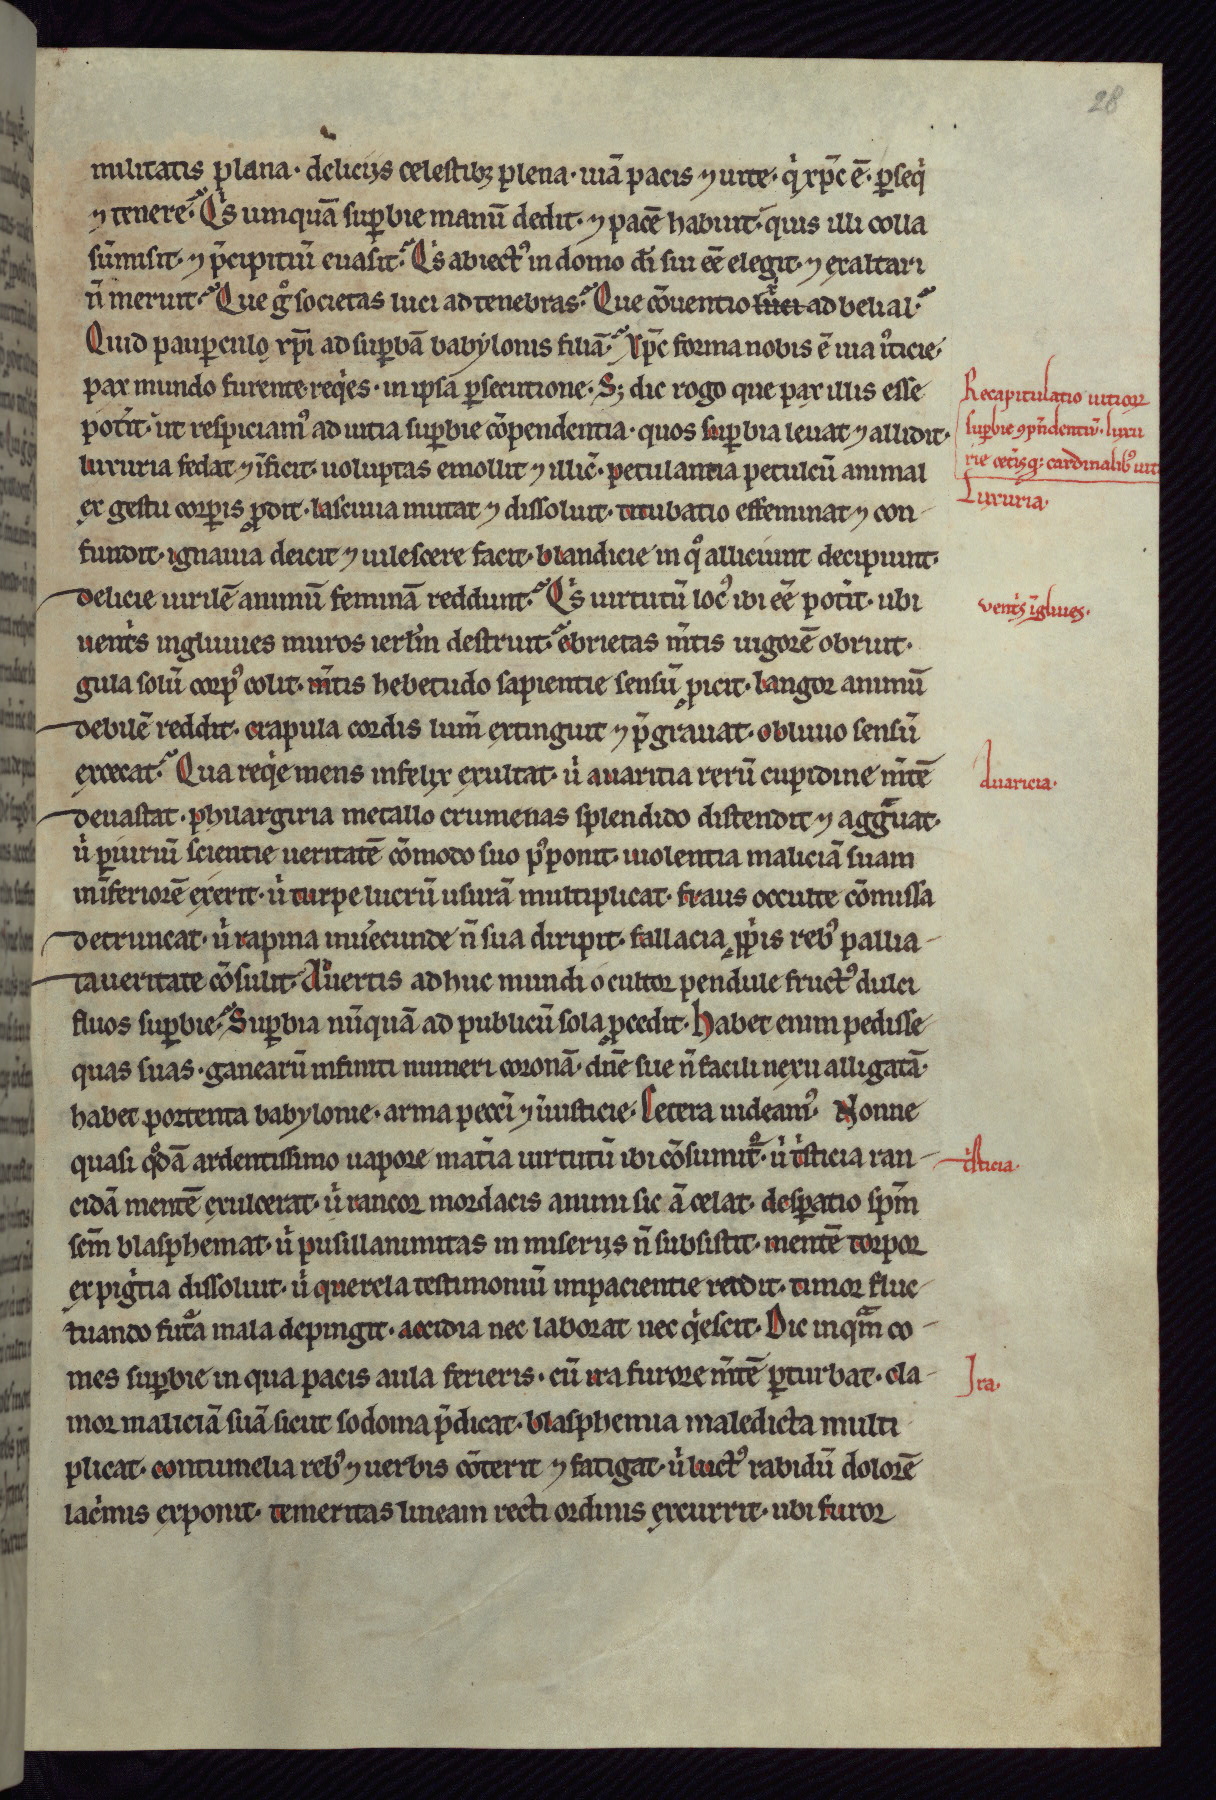 28
militatis plana · deliciis celestibꝫ plena · uiā pacis ⁊ uite · q̇ xp̄c ē · ꝑseq̇
⁊ tenere. Q̇s umquā suꝑbie manū dedit · ⁊ pacē habuit · quis illi colla
sūmisit · ⁊ p̄cipitiū euasit. Q̇s abiectꝰ in domo dī sui eē elegit · ⁊ exaltari
n̄ meruit. Que gͦ societas luci ad tenebras. Que cōuentio ad belial.
Quid pauꝑculo xp̄i ad suꝑbā babylonis filiā. Xp̄c forma nobis ē uia iᷓticie·
pax mundo furente reqͥes · in ipsa ꝑsecutione · Sꝫ dic rogo que pax illis esse
potit̄ · ut respiciamꝰ ad uitia suꝑbie cōpendentia · quos suꝑbia leuat ⁊ allidit ·
luxuria fedat ⁊ īficit · uoluptas emollit ⁊ illic̄ · petulantia petulcū animal
ex gestu corꝑis ꝓdit · lasciuia mutat ⁊ dissoluit · titubatio effeminat ⁊ con
fundit · ignauia deicit ⁊ uilescere facit · blandicie in qͦ alliciunt decipiunt ·
delicie uirilē animū feminā reddunt. Q̇s uirtutū locꝰ ibi eē potit̄ · ubi
uent̄s ingluuies muros ierlm̄ destruit. ebrietas m̄tis uigorē obruit ·
gula solū corpꝰ colit · m̄tis hebetudo sapientie sensū ꝓicit · langor animū
debilē reddit · crapula cordis lum̄ extinguit ⁊ p̄grauat · obliuio sensū
excecat. Qua reqͥe mens infelix exultat · ů auaritia rerū cupidine m̄tē
deuastat · philargiria metallo crumenas splendido distendit ⁊ aggᷓuat ·
ů ꝑiuriū scientie ueritatē cōmodo suo pꝰponit · uiolentia maliciā suam
inīferiorē exerit · ů turpe lucrū usurā multiplicat · fraus occulte cōmissa
detruncat · ů rapina inůecunde n̄ sua diripit · fallacia ꝓpͥis rebꝰ pallia
ta ueritate cōsulit · Aůertis adhuc mundi o cultor pendule fructꝰ dulci
fluos suꝑbie. Suꝑbia nūquā ad publicū sola ꝓcedit · habet enim pedisse
quas suas · ganearū infiniti numeri coronā · dn̄e sue n̄ facili nexu alligatā ·
habet portenta babylonie · arma pecc̄i ⁊ iniusticie · Cetera uideamꝰ · Nonne
quasi qͦdā ardentissimo uapore mat̄ia uirtutū ibi cōsumit᷑ · ů tͥsticia ran
cidā mentē exulcerat · ů rancor mordacis animi sic ā celat · desꝑatio spm̄
sem̄ blasphemat · ů pusillanimitas in miseriis n̄ subsistit · mentē torpor
ex pigͥtia dissoluit · ů querela testimoniū impacientie reddit · timor fluc
tuando futᷓa mala depingit · accidia nec laborat nec qͥescit · Dic inqᷓm co
mes suꝑbie in qua pacis aula ferieris · cū ira furore m̄tē ꝑturbat · cla
mor maliciā suā sicut sodoma p̄dicat · blasphemia maledicta multi
plicat · contumelia rebꝰ ⁊ uerbis cōterit ⁊ fatigat · ů luctꝰ rabidū dolorē
lac̄mis exponit · temeritas lineam recti ordinis excurrit · ubi furor
Recapitulatio uitioꝝ
suꝑbie ꝯp̄ndentiū · luxu
rie cet̄isqꝫ cardinalibꝰ uit
Luxuria ·
vent̄s īgluuies ·
Auaricia ·
tͥsticia ·
Ira ·